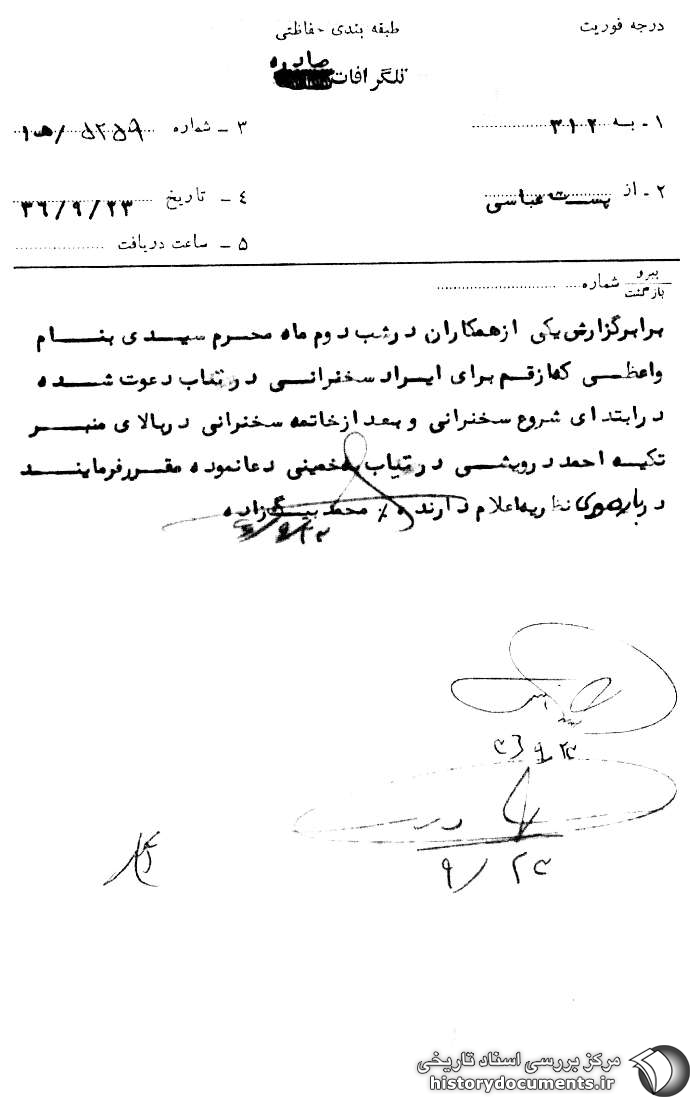 درجه فوریت
طبقه بندی حفاظتی
تلگرافات صادره
۱ - به ۳۱۲
۳ - شماره
۲ - از پست عباسی
۴ - تاریخ ۳۶/۹/۲۳
۵ - ساعت دریافت
پیرو
بازگشت
شماره
برابر گزارش یکی از همکاران در شب دوم ماه محرم سیدی بنام
واعظی که از قم برای ایراد سخنرانی در تیاب دعوت شده
در ابتدای شروع سخنرانی و بعد از خاتمه سخنرانی در بالای منبر
تکیه احمد درویشی در تیاب به خمینی دعا نموده مقرر فرمایند
در باره نظریه اعلام دارند ٪ محمد بیگ زاده
۳۶ ۹ ۲۳
۹/۲۳
مرکز بررسی اسناد تاریخی
historydocuments.ir